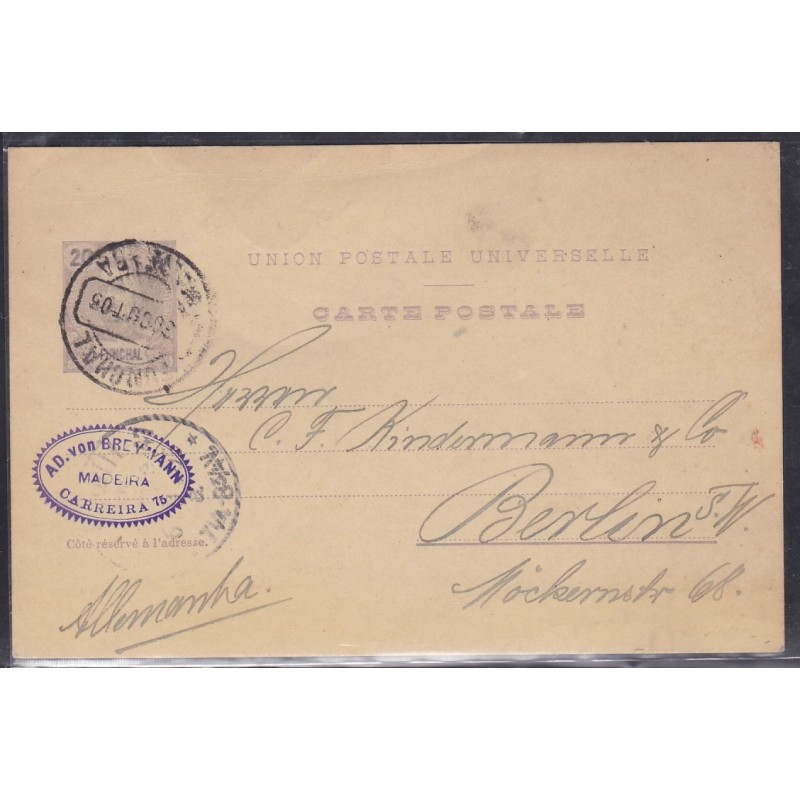 20
UNION POSTALE UNIVERSELLE
CARTE POSTALE
FUNCHAL
FUNCHAL
Herren
C. F. Kindermann & Co
AD. von BREYMANN
MADEIRA
CARREIRA 75
Berlin S.W.
Côté réservé à l'adresse.
Möckernstr 68.
Allemanha.